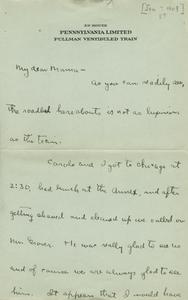 EN ROUTE
PENNSYLVANIA LIMITED
PULLMAN VESTIBULED TRAIN
My dear Mamma –
As you can readily see,
the roadbed hereabouts is not as luxurious
as the train.
Carole and I got to Chicago at
2:30, had lunch at the Annex, and after
getting shaved and cleaned up we called on
Mrs. Grover. He was really glad to see us
and of course we are always glad to see
him. It appears that I would have